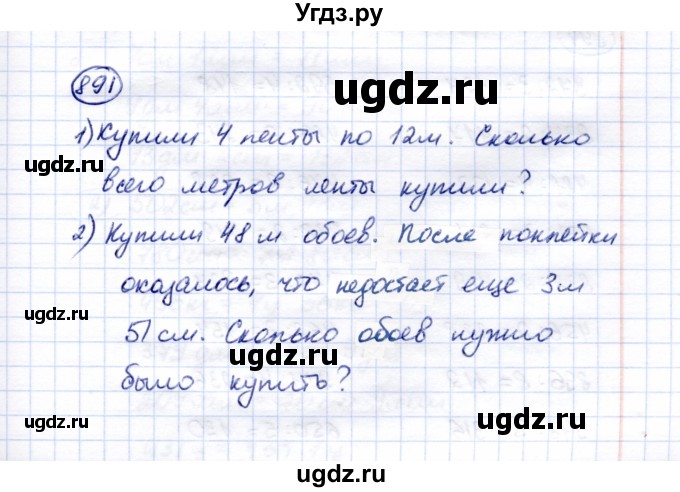 Угдз.ру
891
ugdz.ru
1) Купили 4 ленты по 12 м. Сколько
ugdz.ru
ugdz.ru
всего метров ленты купили?
2) Купили 48 м обоев. После поклейки
оказалось, что недостает еще 3 м
51 см. Сколько обоев нужно
ugdz.ru
ugdz.ru
было купить?
ugdz.ru
ugdz.ru